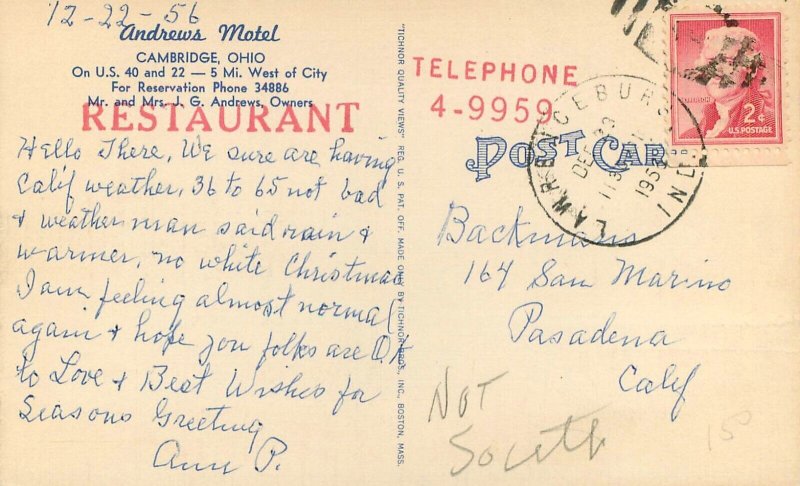 12-22-56
Andrews Motel
CAMBRIDGE, OHIO
On U.S. 40 and 22 — 5 Mi. West of City
For Reservation Phone 34886
Mr. and Mrs. J. G. Andrews, Owners
RESTAURANT
Hello There, We sure are having
Calif weather, 36 to 65 not bad
& weather man said rain &
warmer, no white Christmas
I am feeling almost normal
again & hope you folks are O.K.
to Love & Best Wishes for
Seasons Greeting
Ann P.
"TICHNOR QUALITY VIEWS" REG. U. S. PAT. OFF. MADE ONLY BY TICHNOR BROS., INC., BOSTON, MASS.
TELEPHONE
4-9959
POST CARD
LAWRENCEBURG IND.
DEC 23
195
JEFFERSON
2¢
U.S. POSTAGE
Backmans
164 San Marino
Pasadena
Calif
Not
South
150